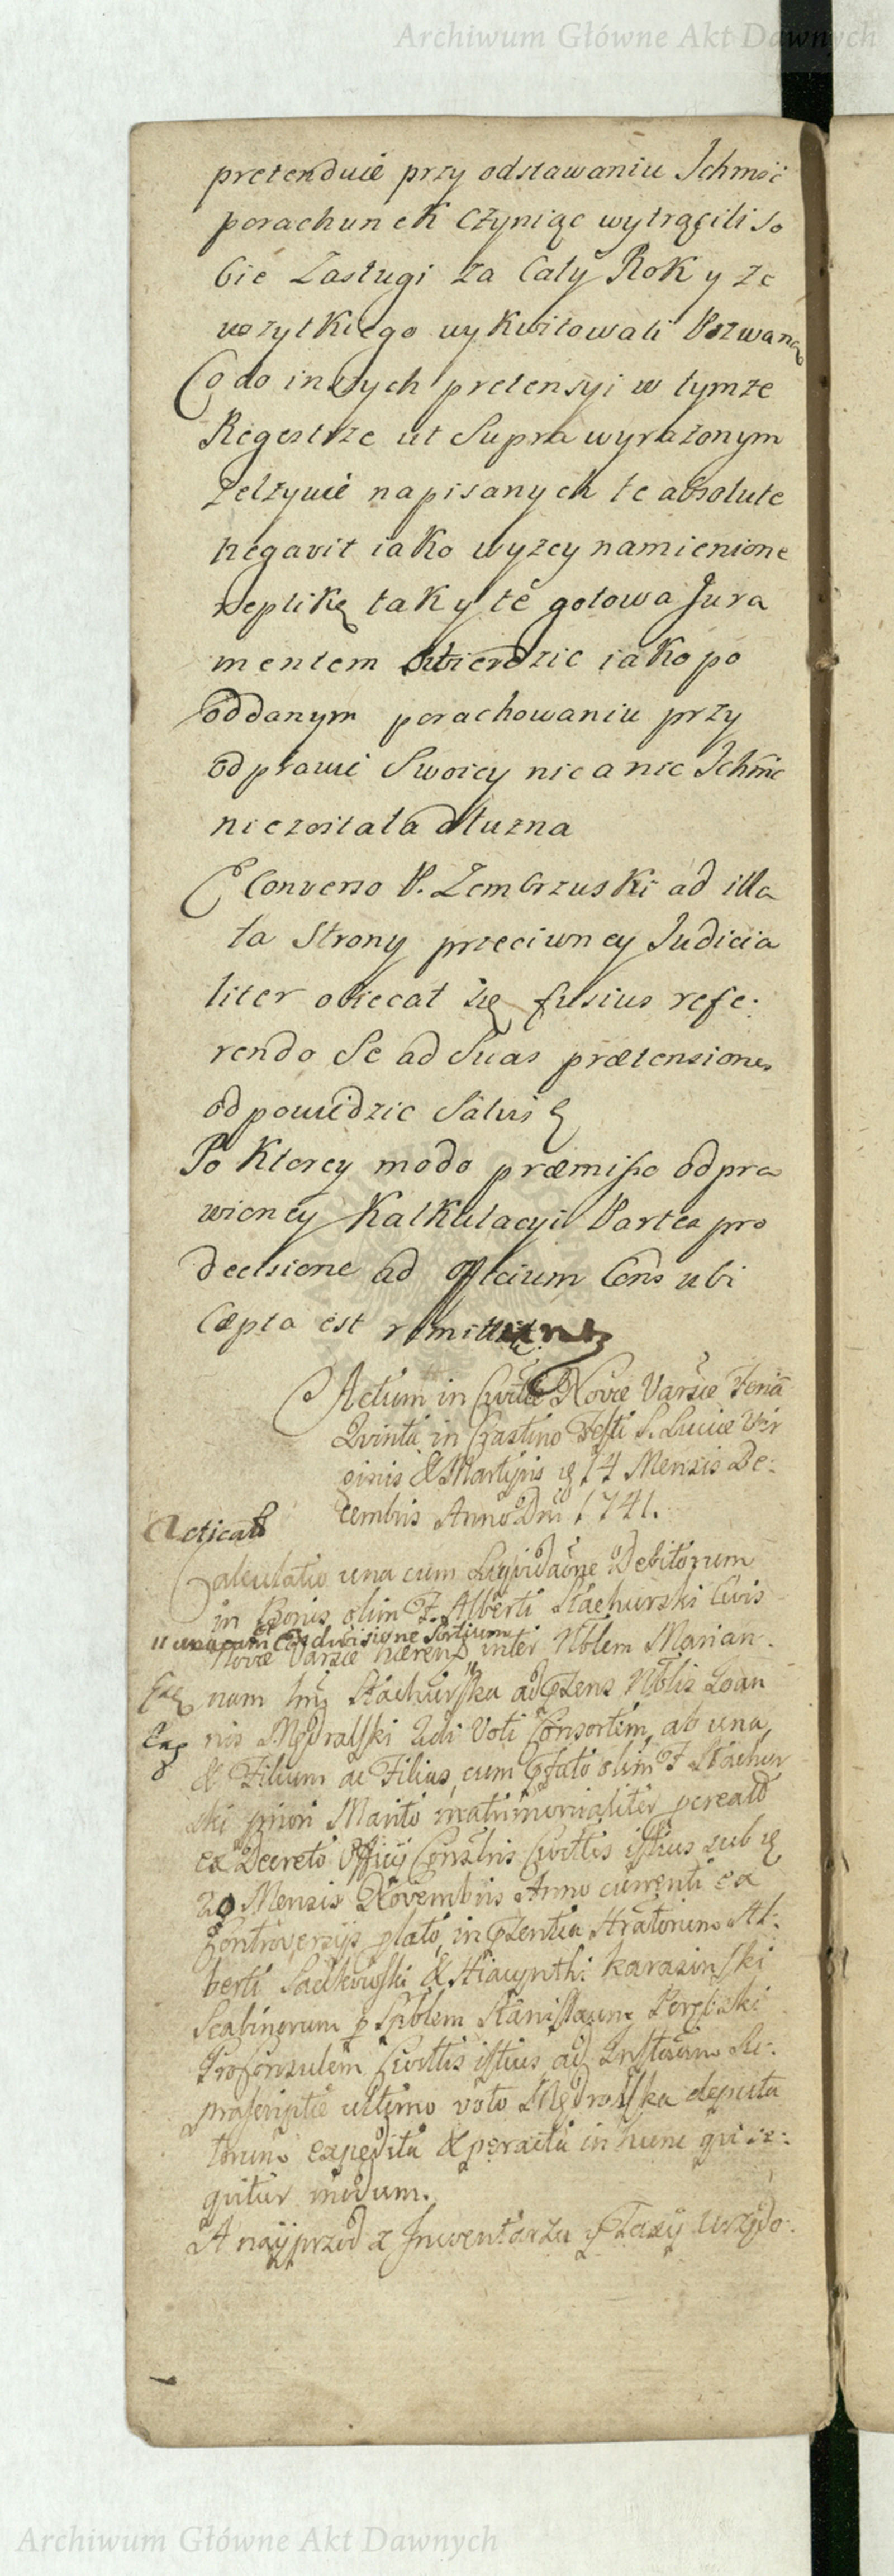 Archiwum Główne Akt Dawnych
pretenduie przy odstawaniu Ichmść
porachunek czyniąc wytrącili so
bie Zasługi za Cały Rok y ze
wszytkiego wykwitowali Pozwaną
Co do inszych pretensyi w tymze
Regestrze ut Supra wyrazonym
zelzywie napisanych te absolute
negavit iako wyzey namienione
replikę tak y te gotowa Jura
mentem stwierdzic iako po
oddanym porachowaniu przy
odprawie Swoiey nic a nic Ichmć
niezostała dłuzna
E Converso P. Zembrzuski ad illa
ta Strony przeciwney Judicia
liter obiecał się fusius refe:
rendo Se ad Suas prætensiones
odpowiedzic Salvis
Po ktorey modo præmisso odpra
wioney Kalkulacyi Partes pro
decisione ad Officium Cons ubi
Cæpta est remittuntr
Actum in Cvitte Novæ Varsæ Feria
Qvinta in Crastino Festi S. Luciæ Vir
ginis & Martyris 14 Mensis De:
cembris Anno Dni 1741.
Acticatō
Calculatio una cum Liqvidaōne Debitorum
in Bonis olim F. Alberti Stachurski Civis
unacum Condivisione Sortium
Novæ Varsæ hærens inter Nblem Marian:
nam Stachurska ad Nblis Ioan
nis Mędralski 2di Voti Consortem, ab una,
& Filium ac Filias, cum olim F. Stachur
ski priori Marito matrimonialiter
ex Decreto Officij Conslris Cvittis istius sub
20 Mensis Novembris Anno currenti ex
Controversijs in Al:
berti Sadkowski & Hiacynthi Karasinski
Scabinorum Spblem Stanislaum
Proconsulem Cvittis istius ad Instām
ultimo voto Mędralska deputa
torum expedita & peracta in hunc qvi se:
qvitur modum.
A nayprzod z Inwentarza y Taxy Urzędo:
Archiwum Główne Akt Dawnych